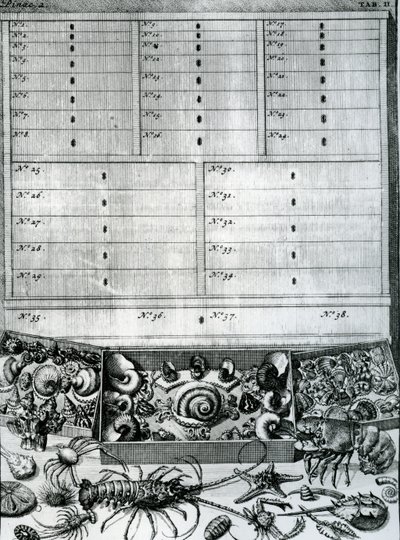 Pinac. 2. TAB. II.
N.º 1. N.º 9. N.º 17.
N.º 2. N.º 10. N.º 18.
N.º 3. N.º 11. N.º 19.
N.º 4. N.º 12. N.º 20.
N.º 5. N.º 13. N.º 21.
N.º 6. N.º 14. N.º 22.
N.º 7. N.º 15. N.º 23.
N.º 8. N.º 16. N.º 24.
N.º 25. N.º 30.
N.º 26. N.º 31.
N.º 27. N.º 32.
N.º 28. N.º 33.
N.º 29. N.º 34.
N.º 35. N.º 36. N.º 37. N.º 38.